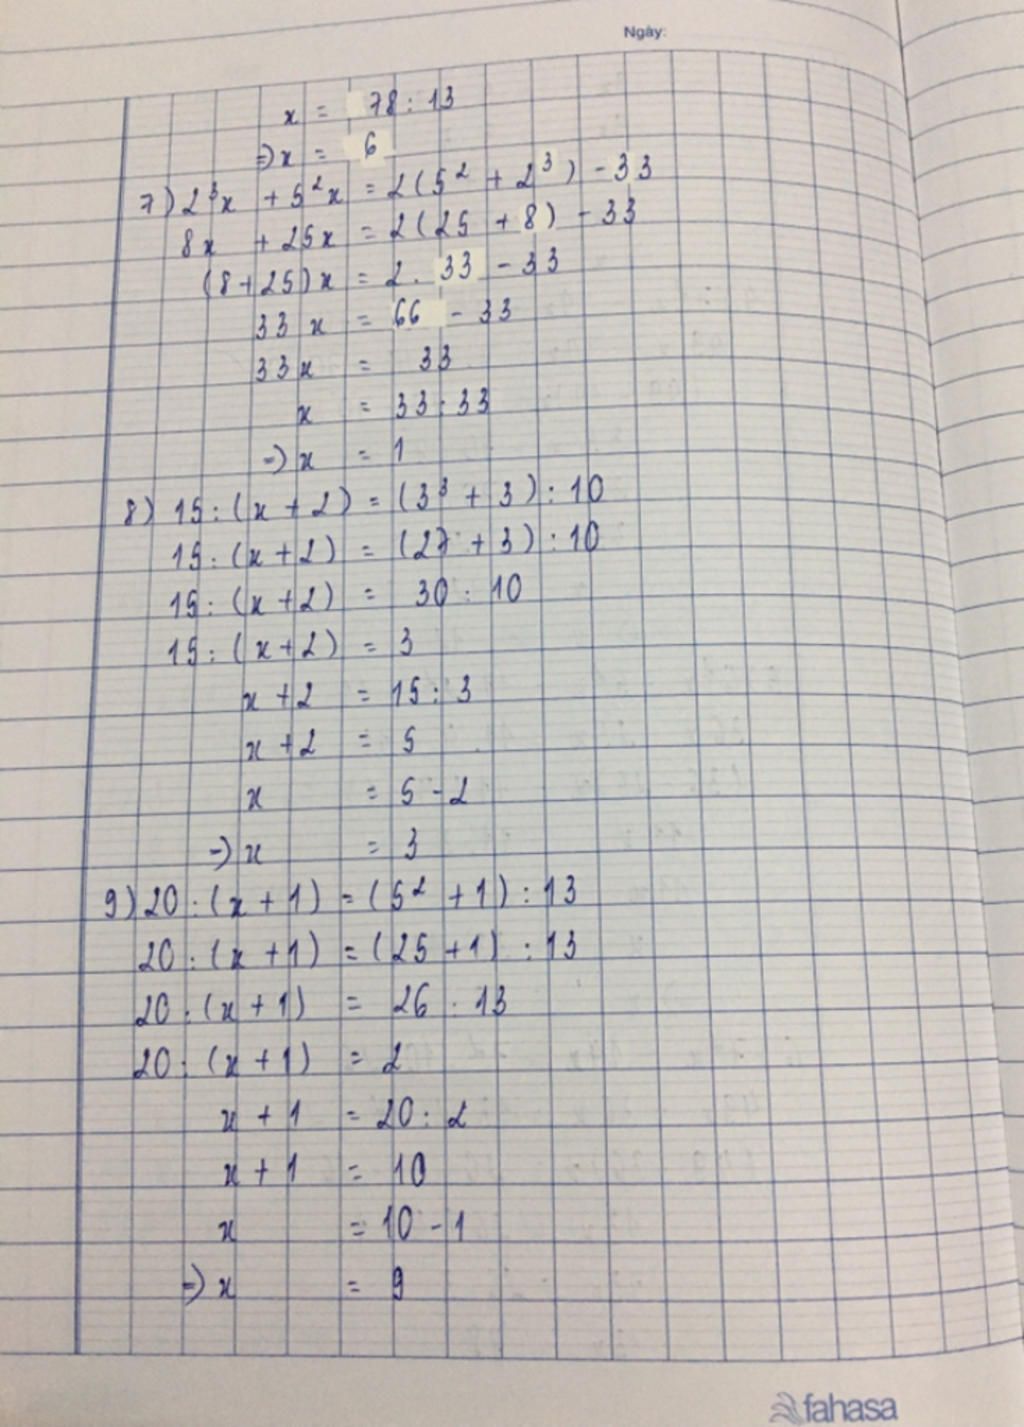 Ngày:
x = 78 : 13
=> x = 6
7) 2³x + 5²x = 2(5² + 2³) - 33
8x + 25x = 2(25 + 8) - 33
(8 + 25)x = 2. 33 - 33
33x = 66 - 33
33x = 33
x = 33 : 33
=> x = 1
8) 15 : (x + 2) = (3³ + 3) : 10
15 : (x + 2) = (27 + 3) : 10
15 : (x + 2) = 30 : 10
15 : (x + 2) = 3
x + 2 = 15 : 3
x + 2 = 5
x = 5 - 2
=> x = 3
9) 20 : (x + 1) = (5² + 1) : 13
20 : (x + 1) = (25 + 1) : 13
20 : (x + 1) = 26 : 13
20 : (x + 1) = 2
x + 1 = 20 : 2
x + 1 = 10
x = 10 - 1
=> x = 9
fahasa